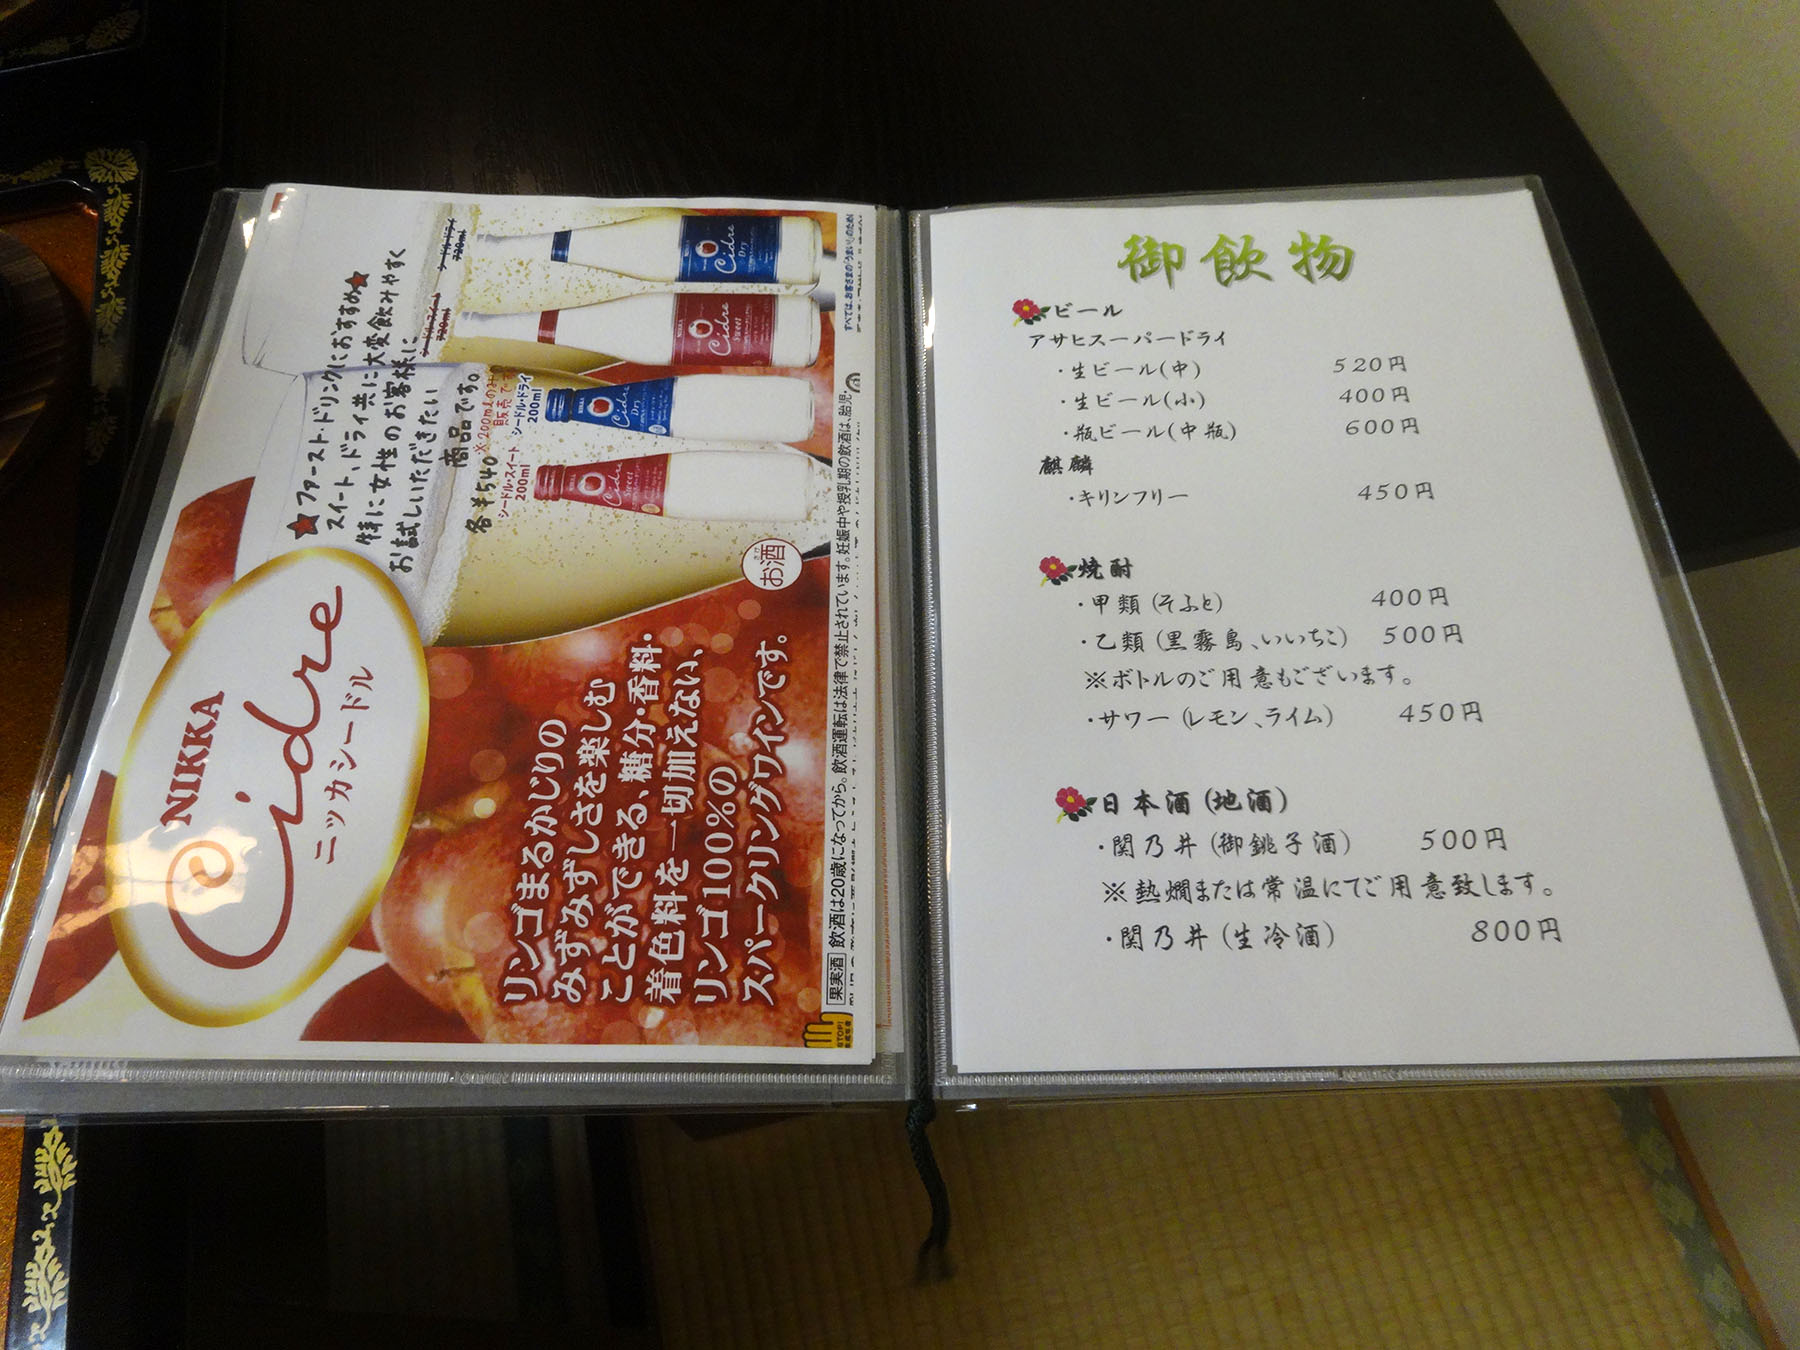 NIKKA
Cidre
ニッカシードル
★ファースト・ドリンクにおすすめ★
スイート、ドライ共に大変飲みやすく
特に女性のお客様に
お試しいただきたい
商品です。
各¥540
※200mlのみの
販売です
シードル・ドライ
720ml
シードル・スイート
720ml
シードル・ドライ
200ml
シードル・スイート
200ml
NIKKA
Cidre
Dry
NIKKA
Cidre
Sweet
NIKKA
Cidre
Dry
NIKKA
Cidre
Sweet
お酒
リンゴまるかじりの
みずみずしさを楽しむ
ことができる、糖分・香料・
着色料を一切加えない、
リンゴ100%の
スパークリングワインです。
すべては、お客さまの「うまい!」のために
果実酒 飲酒は20歳になってから。飲酒運転は法律で禁止されています。妊娠中や授乳期の飲酒は、胎児・
STOP!
御飲物
ビール
アサヒスーパードライ
・生ビール(中) 520円
・生ビール(小) 400円
・瓶ビール(中瓶) 600円
麒麟
・キリンフリー 450円
焼酎
・甲類(そふと) 400円
・乙類(黒霧島、いいちこ) 500円
※ボトルのご用意もございます。
・サワー(レモン、ライム) 450円
日本酒(地酒)
・関乃井(御銚子酒) 500円
※熱燗または常温にてご用意致します。
・関乃井(生冷酒) 800円